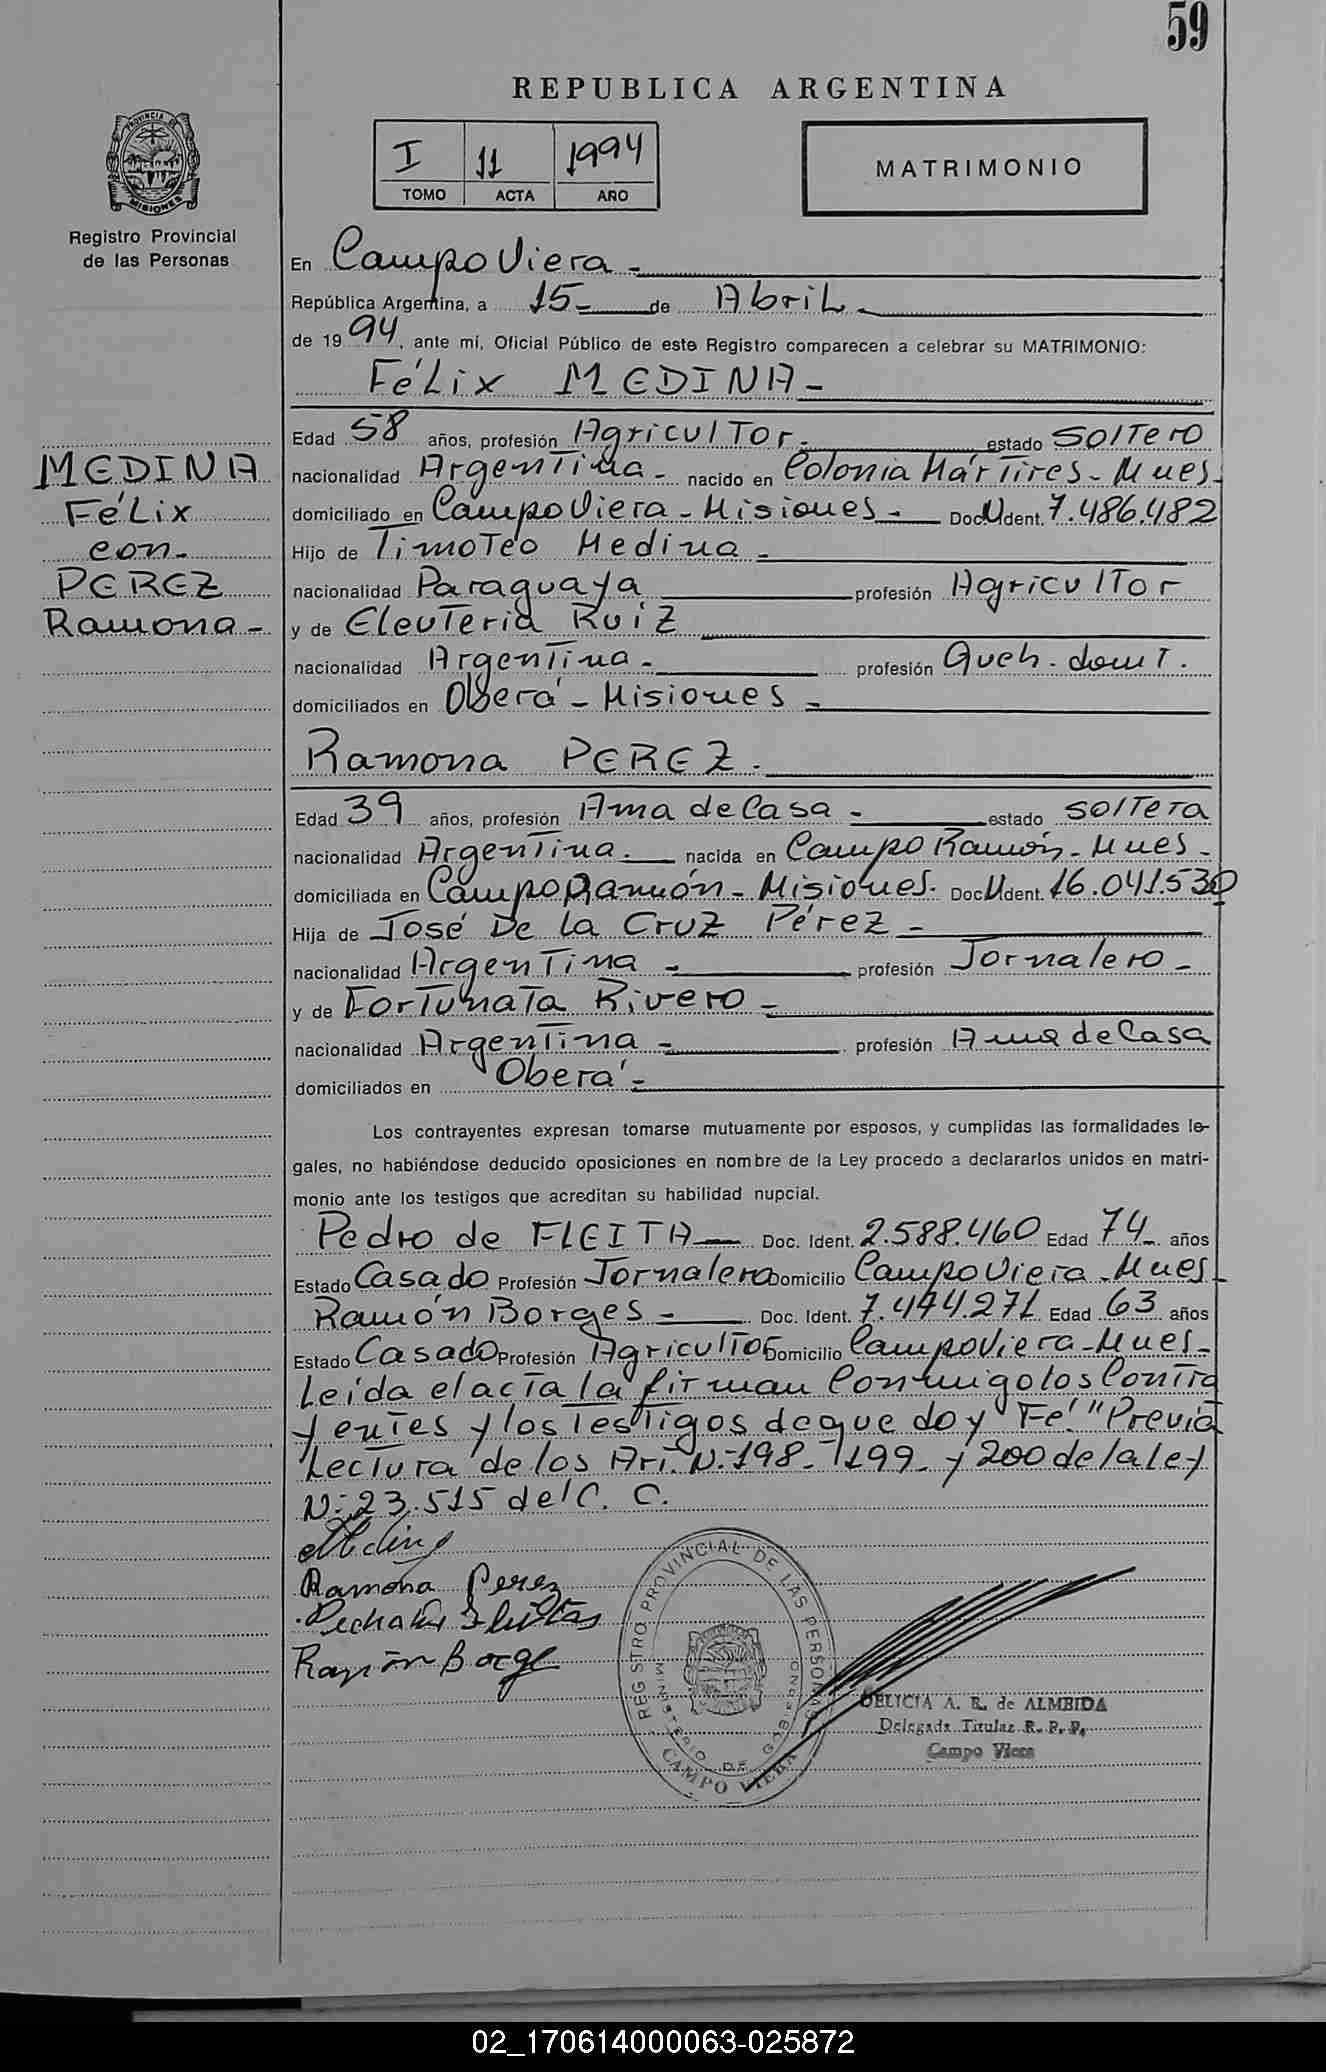 59
REPUBLICA ARGENTINA
I 11 1994
TOMO ACTA AÑO
MATRIMONIO
PROVINCIA DE MISIONES
Registro Provincial
de las Personas
En Campo Viera -
República Argentina, a 15- de Abril -
de 1994, ante mí, Oficial Público de este Registro comparecen a celebrar su MATRIMONIO:
Félix MEDINA -
Edad 58 años, profesión Agricultor. estado soltero
nacionalidad Argentina - nacido en Colonia Mártires - Mnes -
domiciliado en Campo Viera - Misiones - Doc. N Ident. 7.486.482
Hijo de Timoteo Medina -
nacionalidad Paraguaya profesión Agricultor
y de Eleuteria Ruíz
nacionalidad Argentina - profesión Queh. domt.
domiciliados en Oberá - Misiones -
MEDINA
Félix
con -
PEREZ
Ramona -
Ramona PEREZ.
Edad 39 años, profesión Ama de Casa - estado soltera
nacionalidad Argentina. nacida en Campo Ramón - Mnes -
domiciliada en Campo Ramón - Misiones. Doc. N Ident. 16.041.530
Hija de José De la Cruz Pérez -
nacionalidad Argentina - profesión Jornalero -
y de Fortunata Rivero -
nacionalidad Argentina - profesión Ama de Casa
domiciliados en Oberá -
Los contrayentes expresan tomarse mutuamente por esposos, y cumplidas las formalidades le-
gales, no habiéndose deducido oposiciones en nombre de la Ley procedo a declararlos unidos en matri-
monio ante los testigos que acreditan su habilidad nupcial.
Pedro de FLEITA Doc. Ident. 2.588.460 Edad 74 años
Estado Casado Profesión Jornalero Domicilio Campo Viera - Mnes -
Ramón Borges - Doc. Ident. 7.474.271 Edad 63 años
Estado Casado Profesión Agricultor Domicilio Campo Viera - Mnes -
Leída el acta la firman Conmigo los Contra
yentes y los Testigos de que doy Fé." Previa
Lectura de los Art. N: 198 - 199 - y 200 de la ley
N: 23.515 del C. C.
Medina
Ramona Perez
Ramón Borge
REGISTRO PROVINCIAL DE LAS PERSONAS
MINISTERIO DE GOBIERNO
CAMPO VIERA
DELICIA A. R. de ALMEIDA
Delegada Titular R. P. P.
Campo Viera
02_170614000063-025872